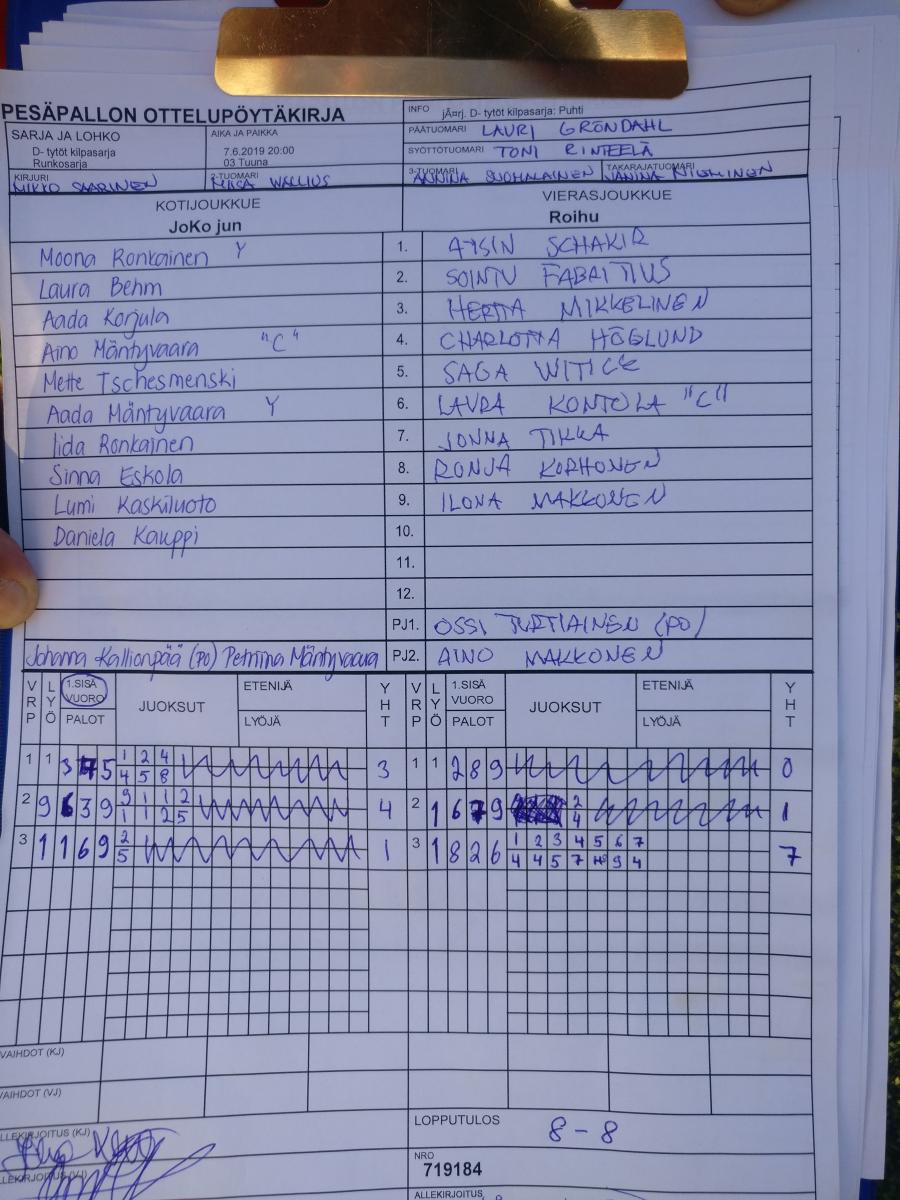 PESÄPALLON OTTELUPÖYTÄKIRJA
INFO jÃ¤rj. D- tytöt kilpasarja: Puhti
SARJA JA LOHKO
D- tytöt kilpasarja
Runkosarja
AIKA JA PAIKKA
7.6.2019 20:00
03 Tuuna
PÄÄTUOMARI LAURI GRÖNDAHL
SYÖTTÖTUOMARI TONI RINTEELÄ
KIRJURI MIKKO SAARINEN
2-TUOMARI MIISA WALLIUS
3-TUOMARI ANNINA SUOMALAINEN
TAKARAJATUOMARI JANINA
KOTIJOUKKUE
JoKo jun
VIERASJOUKKUE
Roihu
Moona Ronkainen Y 1. AYSIN SCHAKIR
Laura Behm 2. SOINTU FABRITIUS
Aada Korjula 3. HERTTA MIKKELINEN
Aino Mäntyvaara "C" 4. CHARLOTTA HÖGLUND
Mette Tschesmenski 5. SAGA WITICK
Aada Mäntyvaara Y 6. LAURA KONTOLA "C"
Iida Ronkainen 7. JONNA TIKKA
Sinna Eskola 8. RONJA KORHONEN
Lumi Kaskiluoto 9. ILONA MAKKONEN
Daniela Kauppi 10.
11.
12.
PJ1. OSSI TURTIAINEN (PO)
Johanna Kallionpää (PO) Petriina Mäntyvaara PJ2. AINO MAKKONEN
VRP LYÖ 1.SISÄ VUORO PALOT JUOKSUT ETENIJÄ LYÖJÄ YHT VRP LYÖ 1.SISÄ VUORO PALOT JUOKSUT ETENIJÄ LYÖJÄ YHT
1 1 3 5 1 2 4 3 1 1 2 8 9 0
4 5 8
2 9 6 3 9 9 1 1 2 4 2 1 6 7 9 2 1
1 1 2 5 4
3 1 1 6 9 2 1 3 1 8 2 6 1 2 3 4 5 6 7 7
5 4 4 5 7 9 4
VAIHDOT (KJ)
VAIHDOT (VJ)
LLEKIRJOITUS (KJ)
LOPPUTULOS 8-8
LLEKIRJOITUS (VJ)
NRO
719184
ALLEKIRJOITUS